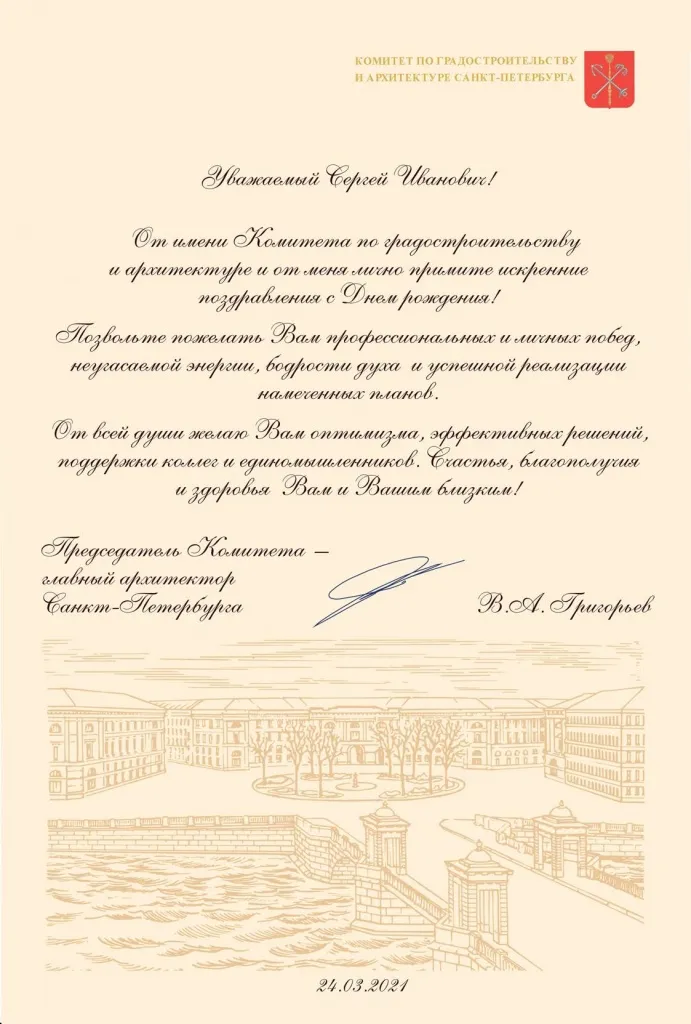 КОМИТЕТ ПО ГРАДОСТРОИТЕЛЬСТВУ
И АРХИТЕКТУРЕ САНКТ-ПЕТЕРБУРГА
Уважаемый Сергей Иванович!
От имени Комитета по градостроительству
и архитектуре и от меня лично примите искренние
поздравления с Днем рождения!
Позвольте пожелать Вам профессиональных и личных побед,
неугасаемой энергии, бодрости духа и успешной реализации
намеченных планов.
От всей души желаю Вам оптимизма, эффективных решений,
поддержки коллег и единомышленников. Счастья, благополучия
и здоровья Вам и Вашим близким!
Председатель Комитета –
главный архитектор
Санкт-Петербурга
В.А. Григорьев
24.03.2021